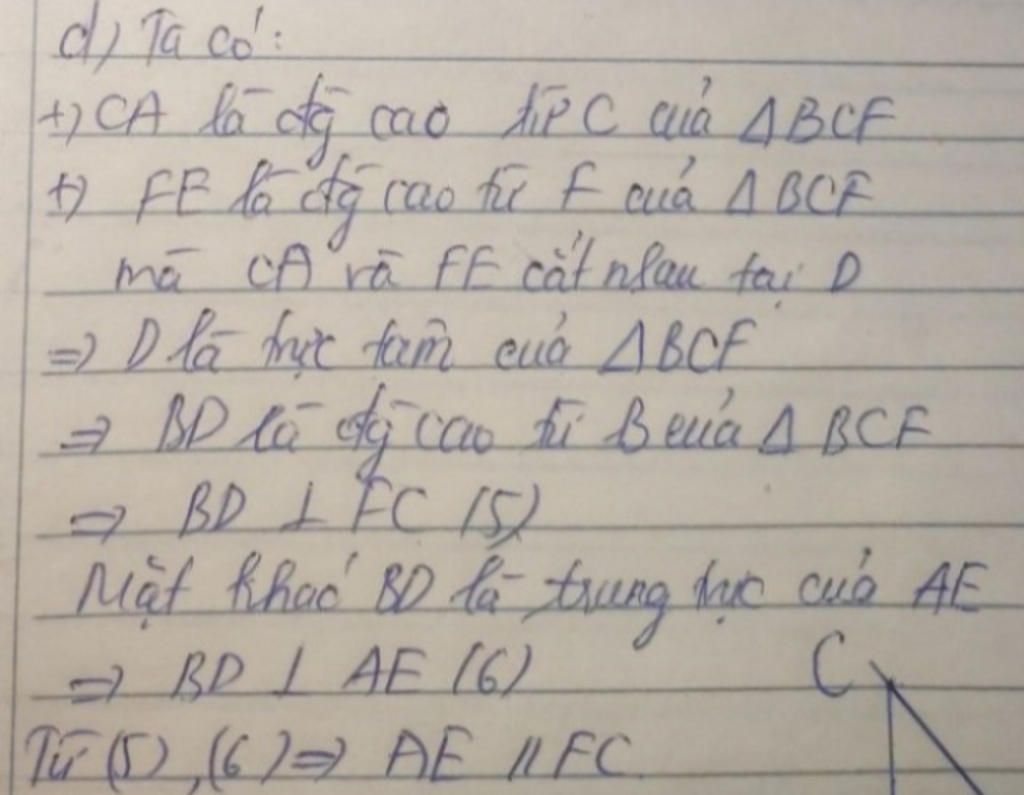 d) Ta có:
+) CA là đg cao từ C của ΔBCF
+) FE là đg cao từ F của ΔBCF
mà CA và FE cắt nhau tại D
=> D là trực tâm của ΔBCF
=> BD là đg cao từ B của Δ BCF
=> BD ⊥ FC (5)
Mặt khác BD là trung trực của AE
=> BD ⊥ AE (6)
C
Từ (5), (6) => AE // FC